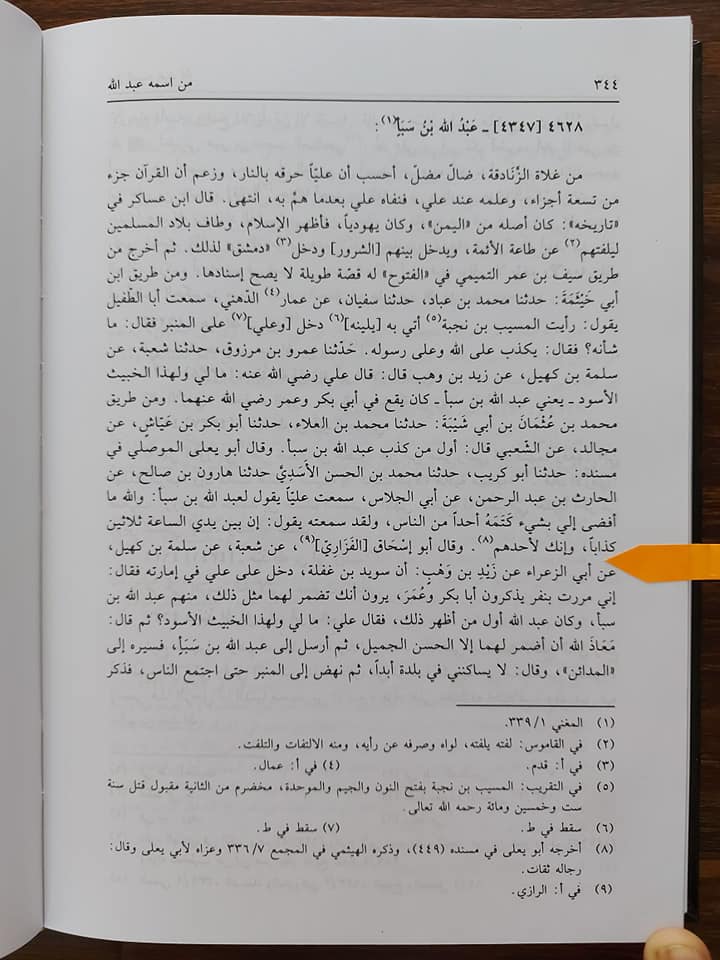 ٣٤٤
من اسمه عبد الله
٤٦٢٨ [٤٣٤٧] ـ عَبْدُ الله بْنُ سَبَأٍ(١):
من غلاة الزَّنَادقة، ضالّ مضلّ، أحسب أن عليّاً حرقه بالنار، وزعم أن القرآن جزء
من تسعة أجزاء، وعلمه عند علي، فنفاه علي بعدما همَّ به، انتهى. قال ابن عساكر في
«تاريخه»: كان أصله من «اليمن»، وكان يهودياً، فأظهر الإسلام، وطاف بلاد المسلمين
ليلفتهم(٢) عن طاعة الأئمة، ويدخل بينهم [الشرور] ودخل(٣) «دمشق» لذلك. ثم أخرج من
طريق سيف بن عمر التميمي في «الفتوح» له قصّة طويلة لا يصح إسنادها. ومن طريق ابن
أبي خَيْثَمَةَ: حدثنا محمد بن عباد، حدثنا سفيان، عن عمار(٤) الذّهني، سمعت أبا الطّفيل
يقول: رأيت المسيب بن نجبة(٥) أتي به [يلينه](٦) دخل [وعلي](٧) على المنبر فقال: ما
شأنه؟ فقال: يكذب على الله وعلى رسوله. حَدّثنا عمرو بن مرزوق، حدثنا شعبة، عن
سلمة بن كهيل، عن زيد بن وهب قال: قال علي رضي الله عنه: ما لي ولهذا الخبيث
الأسود ـ يعني عبد الله بن سبأ ـ كان يقع في أبي بكر وعمر رضي الله عنهما. ومن طريق
محمد بن عُثْمَانَ بن أبي شَيْبَةَ: حدثنا محمد بن العلاء، حدثنا أبو بكر بن عَيَّاشٍ، عن
مجالد، عن الشّعبي قال: أول من كذب عبد الله بن سبأ. وقال أبو يعلى الموصلي في
مسنده: حدثنا أبو كريب، حدثنا محمد بن الحسن الأَسَدِيُّ حدثنا هارون بن صالح، عن
الحارث بن عبد الرحمن، عن أبي الجلاس، سمعت عليّاً يقول لعبد الله بن سبأ: والله ما
أفضى إلي بشيء كَتَمَهُ أحداً من الناس، ولقد سمعته يقول: إن بين يدي الساعة ثلاثين
كذاباً، وإنك لأحدهم(٨). وقال أبو إسْحَاق [الفَزَارِيّ](٩)، عن شعبة، عن سلمة بن كهيل،
عن أبي الزعراء عن زَيْدِ بن وَهْبٍ: أن سويد بن غفلة، دخل على علي في إمارته فقال:
إني مررت بنفر يذكرون أبا بكر وعُمَرَ، يرون أنك تضمر لهما مثل ذلك، منهم عبد الله بن
سبأ، وكان عبد الله أول من أظهر ذلك، فقال علي: ما لي ولهذا الخبيث الأسود؟ ثم قال:
مَعَاذَ الله أن أضمر لهما إلا الحسن الجميل، ثم أرسل إلى عبد الله بن سَبَأٍ، فسيره إلى
«المدائن»، وقال: لا يساكنني في بلدة أبداً، ثم نهض إلى المنبر حتى اجتمع الناس، فذكر
(١) المغني ٣٣٩/١.
(٢) في القاموس: لفته يلفته، لواه وصرفه عن رأيه، ومنه الالتفات والتلفت.
(٣) في أ: قدم. (٤) في أ: عمال.
(٥) في التقريب: المسيب بن نجبة بفتح النون والجيم والموحدة، مخضرم من الثانية مقبول قتل سنة
ست وخمسين ومائة رحمه الله تعالى.
(٦) سقط في ط. (٧) سقط في ط.
(٨) أخرجه أبو يعلى في مسنده (٤٤٩)، وذكره الهيثمي في المجمع ٣٣٦/٧ وعزاه لأبي يعلى وقال:
رجاله ثقات.
(٩) في أ: الرازي.